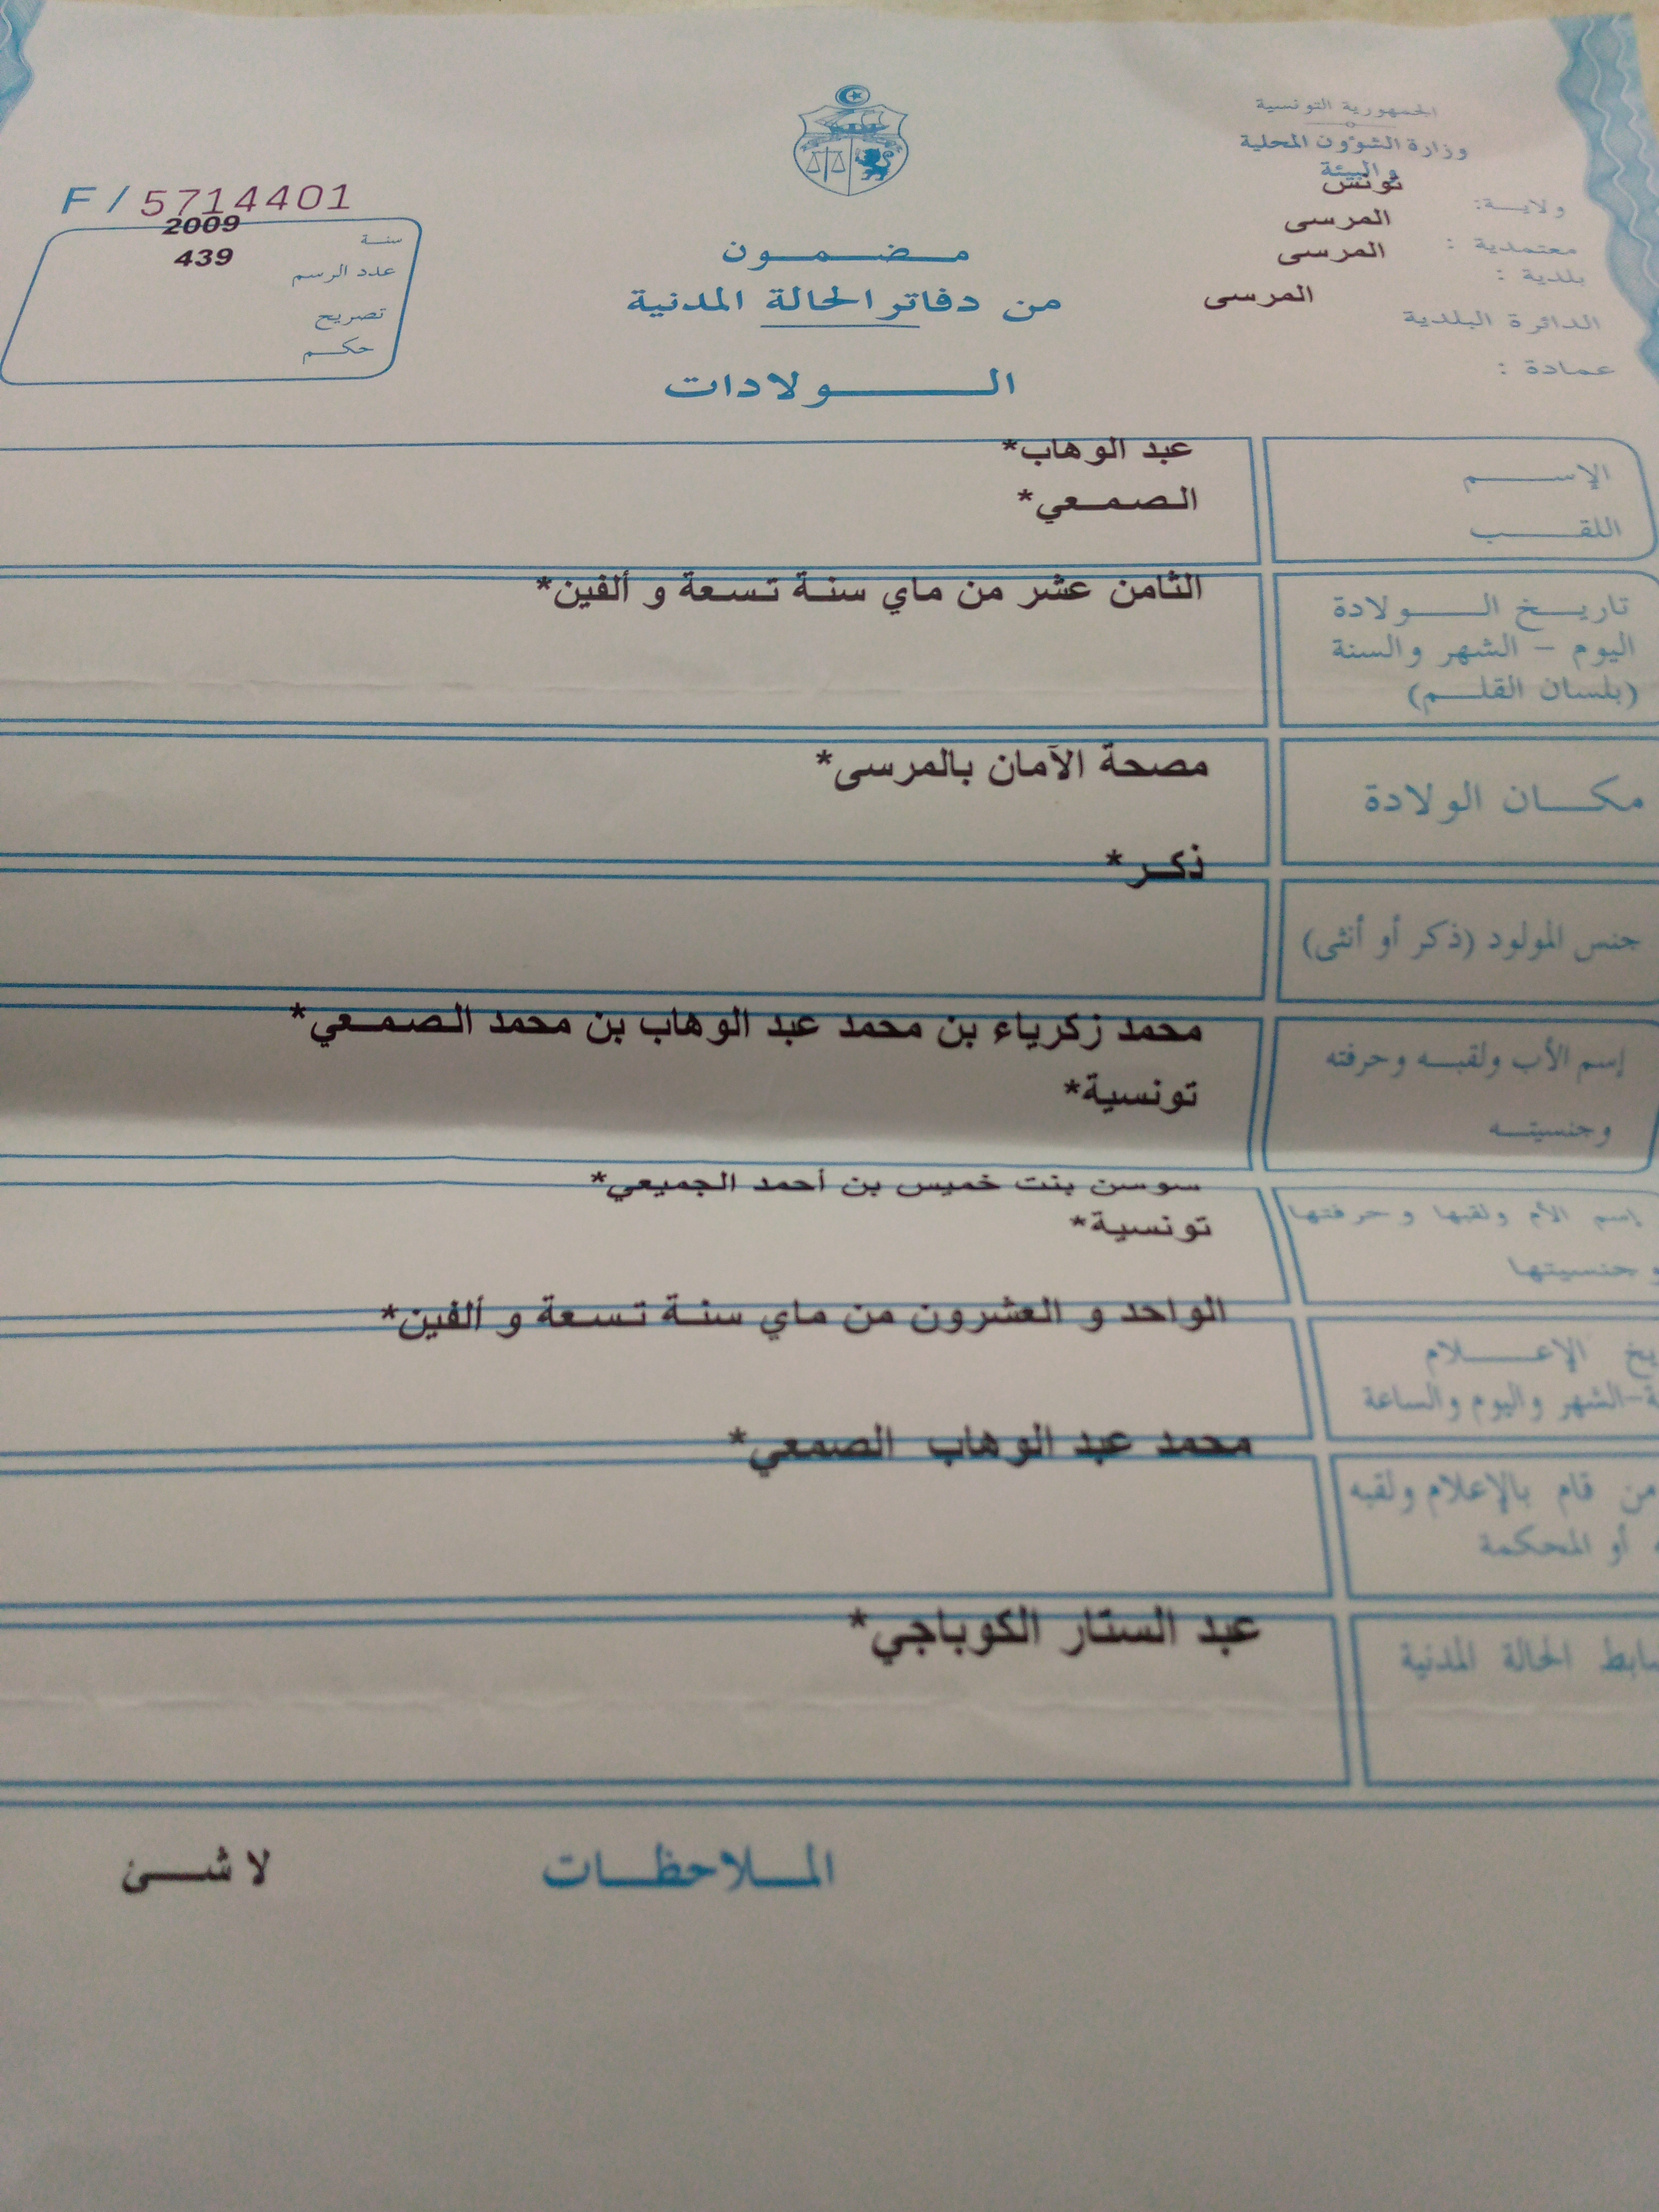 الجمهورية التونسية
وزارة الشؤون المحلية
والبيئة
تونس
ولاية:
المرسى
معتمدية :
المرسى
بلدية :
المرسى
الدائرة البلدية
عمادة :
F / 5714401
سنة 2009
عدد الرسم 439
تصريح
حكم
مضمون
من دفاتر الحالة المدنية
الولادات
الإسم عبد الوهاب*
اللقب الصمعي*
تاريخ الولادة الثامن عشر من ماي سنة تسعة و ألفين*
اليوم - الشهر والسنة
(بلسان القلم)
مكان الولادة مصحة الآمان بالمرسى*
ذكر*
جنس المولود (ذكر أو أنثى)
إسم الأب ولقبه وحرفته محمد زكرياء بن محمد عبد الوهاب بن محمد الصمعي*
وجنسيته تونسية*
إسم الأم ولقبها وحرفتها سوسن بنت خميس بن أحمد الجميعي*
وجنسيتها تونسية*
الواحد و العشرون من ماي سنة تسعة و ألفين*
يخ الإعلام
ة-الشهر واليوم والساعة
محمد عبد الوهاب الصمعي*
من قام بالإعلام ولقبه
أو المحكمة
عبد الستار الكوباجي*
ابط الحالة المدنية
الملاحظات لا شئ